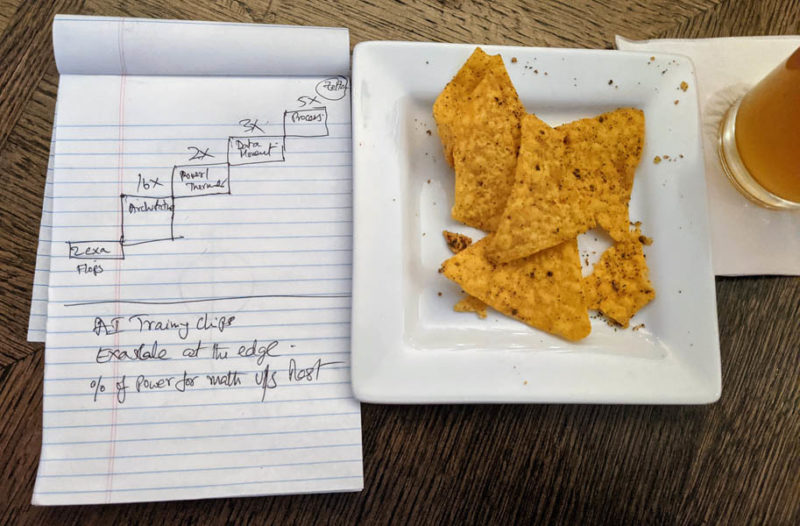 Zetta
5X
Process
3X
Data
Movemt
2X
Power/
Thermal
16X
Architectur
2 exa
Flops
AI Training chips
Exascale at the edge.
% of power for math v/s Rest